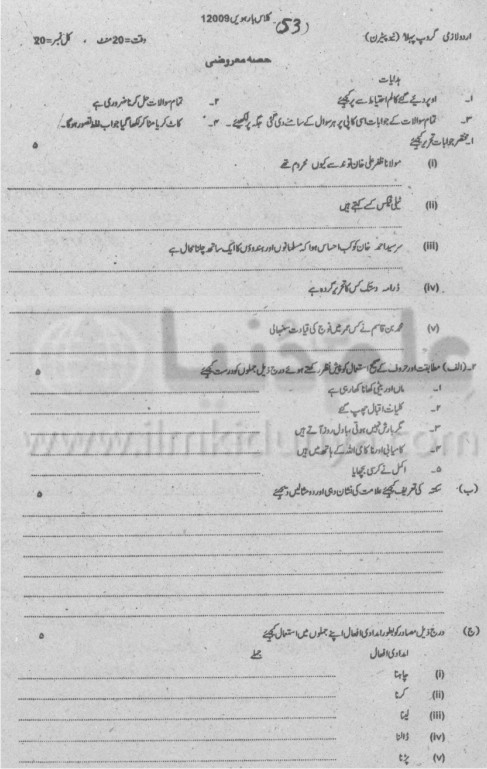 کلاس بارہویں 12009 (53)
اردو لازمی گروپ پہلا (نیو پیٹرن) وقت=20 منٹ کل نمبر=20
حصہ معروضی
ہدایات
۱۔ اوپر دیے گئے کالم احتیاط سے پر کیجئے ۲۔ تمام سوالات حل کرنا ضروری ہے
۳۔ تمام سوالات کے جوابات اسی کاپی پر ہر سوال کے سامنے دی گئی جگہ پر لکھیئے ۴۔ کاٹ کر یا مٹا کر لکھا گیا جواب غلط تصور ہوگا۔
۱۔ مختصر جوابات تحریر کیجئے ۵
(i) مولانا ظفر علی خان قواعد سے کیوں محروم تھے
(ii) ٹیلی فیکس کسے کہتے ہیں
(iii) سرسید احمد خان کو کب احساس ہوا کہ مسلمانوں اور ہندوؤں کا ایک ساتھ چلنا محال ہے
(iv) ڈرامہ دستک کس کا تحریر کردہ ہے
(v) محمد بن قاسم نے کس عمر میں فوج کی قیادت سنبھالی
علم کی دنیا
۲۔ (الف) مطابقت اور حروف کے صحیح استعمال کو پیش نظر رکھتے ہوئے درج ذیل جملوں کو درست کیجئے
۱۔ ماں اور بیٹی کھانا کھا رہی ہے
۲۔ کلیات اقبال چھپ گئے
۳۔ مگر بارش نہیں ہوتی بادل روز آتے ہیں
www.ilmkidunya.com
۴۔ کامیابی اور ناکامی اللہ کے ہاتھ میں ہیں
۵۔ اکمل نے کرسی بچھایا
(ب)۔ سکتہ کی تعریف کیجئے علامت کی نشان دہی اور دو مثالیں دیجئے ۵
(ج) درج ذیل مصادر کو بطور امدادی افعال اپنے جملوں میں استعمال کیجئے ۵
امدادی افعال جملے
(i) چاہنا
(ii) کرنا
(iii) لینا
(iv) ڈالنا
(v) پڑنا